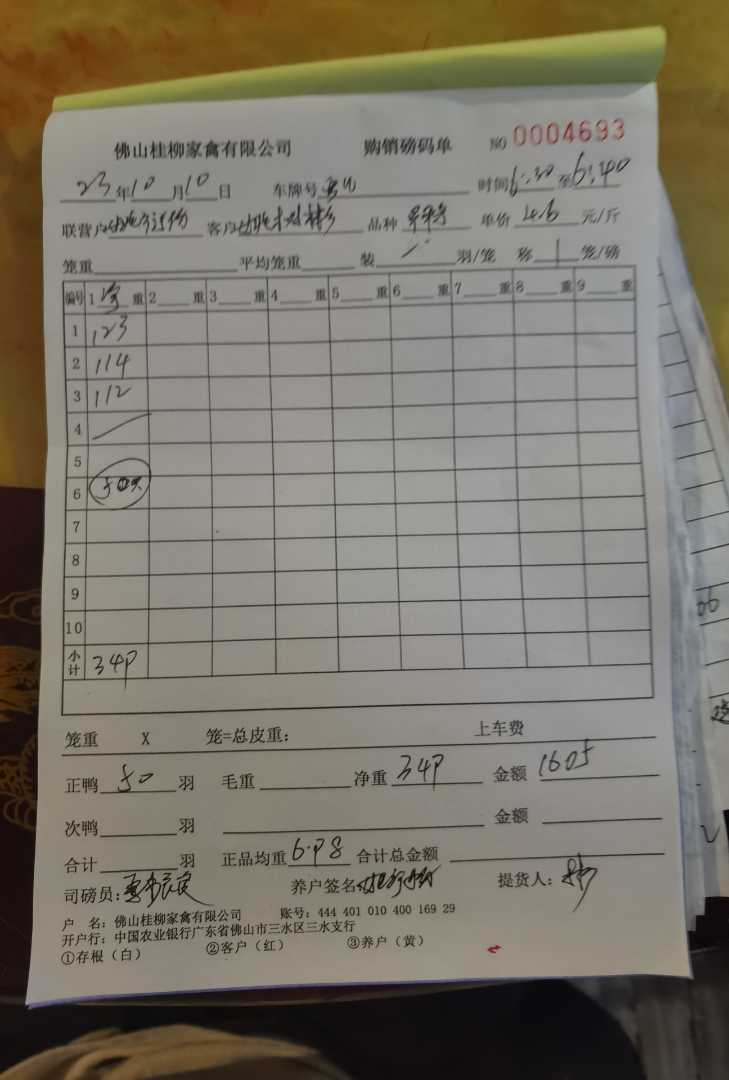 佛山桂柳家禽有限公司 购销磅码单 NO 0004693
23年10月10日 车牌号 时间6:20至6:40
联营户 客户 品种 单价4.6元/斤
笼重 平均笼重 装 羽/笼 称1笼/磅
编号 1 重 2 重 3 重 4 重 5 重 6 重 7 重 8 重 9 重
1 123
2 114
3 112
4
5
6 50只
7
8
9
10
小计 349
笼重 X 笼=总皮重: 上车费
正鸭50羽 毛重 净重349 金额1605
次鸭 羽 金额
合计 羽 正品均重6.98 合计总金额
司磅员: 养户签名 提货人:
户 名: 佛山桂柳家禽有限公司 账号: 444 401 010 400 169 29
开户行: 中国农业银行广东省佛山市三水区三水支行
①存根(白) ②客户(红) ③养户(黄)